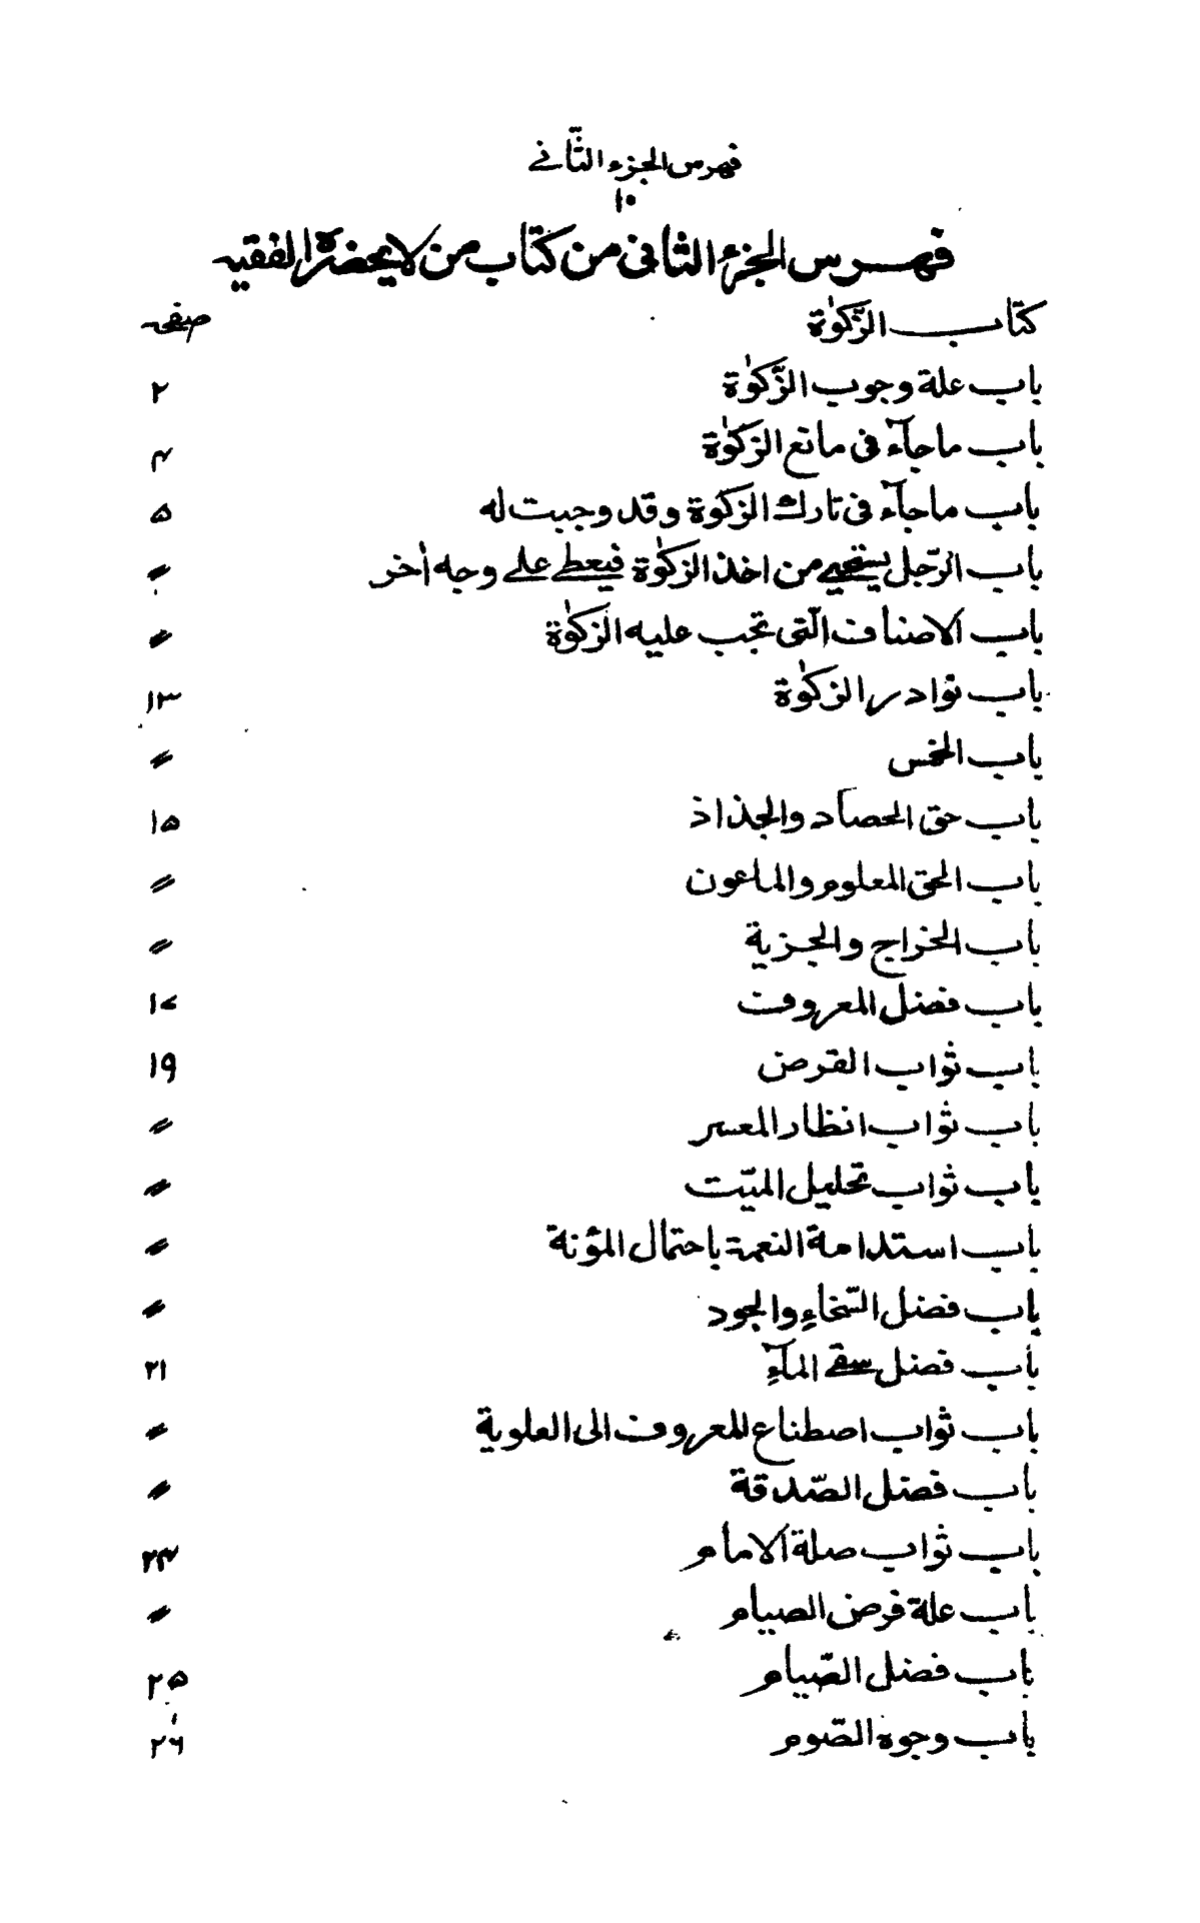 فهرس الجزء الثّانے
١٠
فهرس الجزء الثانی من کتاب من لا یحضره الفقیه
کتاب الزّکوٰة صفحہ
باب علة وجوب الزّکوٰة ۲
باب ماجآء فی مانع الزکوٰة ۴
باب ماجآء فی تارك الزکوٰة وقد وجبت له ۵
باب الرّجل یستحیے من اخذ الزکوٰة فیعطے علے وجه اٰخر 〃
باب الاصناف الّتی تجب علیه الزکوٰة 〃
باب نوادر الزکوٰة ۱۳
باب الخمس 〃
باب حق الحصاد والجذاذ ۱۵
باب الحق المعلوم والماعون 〃
باب الخراج والجزیة 〃
باب فضل المعروف ۱۷
باب ثواب القرض ۱۹
باب ثواب انظار المعسر 〃
باب ثواب تحلیل المیّت 〃
باب استدامة النعمة باحتمال المؤنة 〃
باب فضل السّخاءِ والجود 〃
باب فضل سقے المآءِ ۲۱
باب ثواب اصطناع للمعروف الی العلویة 〃
باب فضل الصّدقة 〃
باب ثواب صلة الامام ۲۴
باب علة فرض الصیام 〃
باب فضل الصّیام ۲۵
باب وجوه الصّوم ۲۶